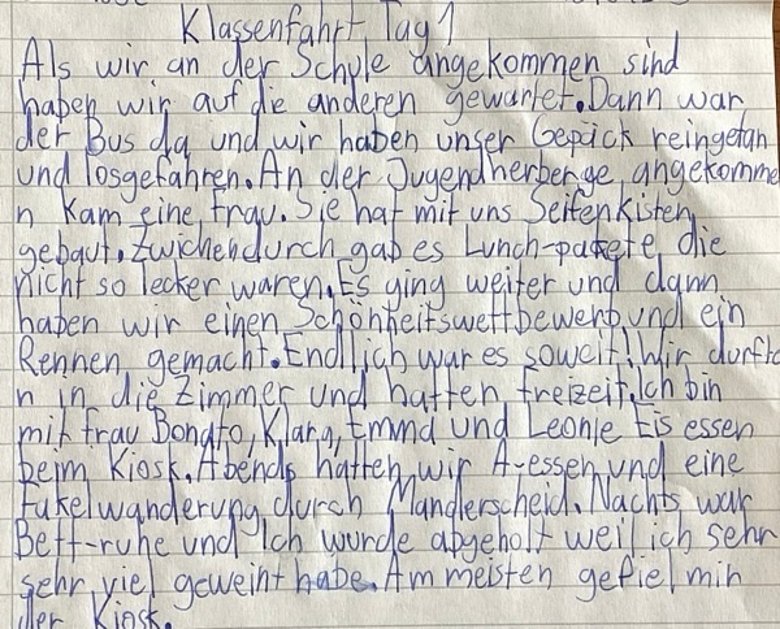 Klassenfahrt Tag 1
Als wir an der Schule angekommen sind
haben wir auf die anderen gewartet. Dann war
der Bus da und wir haben unser Gepäck reingetan
und losgefahren. An der Jugendherberge angekomme
n kam eine Frau. Sie hat mit uns Seifenkisten
gebaut. Zwichendurch gab es Lunch-pakete die
nicht so lecker waren. Es ging weiter und dann
haben wir einen Schönheitswettbewerb und ein
Rennen gemacht. Endlich war es soweit! Wir durfte
n in die Zimmer und hatten freizeit. Ich bin
mit Frau Bonato, Klara, Emma und Leonie Eis essen
beim Kiosk. Abends hatten wir A-essen und eine
Fakelwanderung durch Manderscheid. Nachts war
Bett-ruhe und Ich wurde abgeholt weil ich sehr
sehr viel geweint habe. Am meisten gefiel mir
der Kiosk.